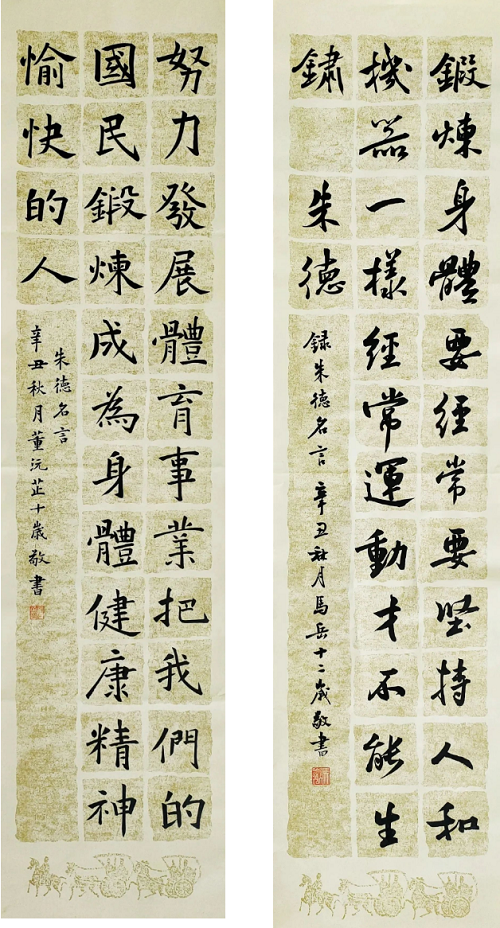 鍛煉身體要經常要坚持人和
機器一樣經常運動才不能生
鏽 朱德
録朱德名言 辛丑秋月馬岳十二歲敬書
努力發展體育事業把我們的
國民鍛煉成為身體健康精神
愉快的人
朱德名言
辛丑秋月董沅芷十歲敬書